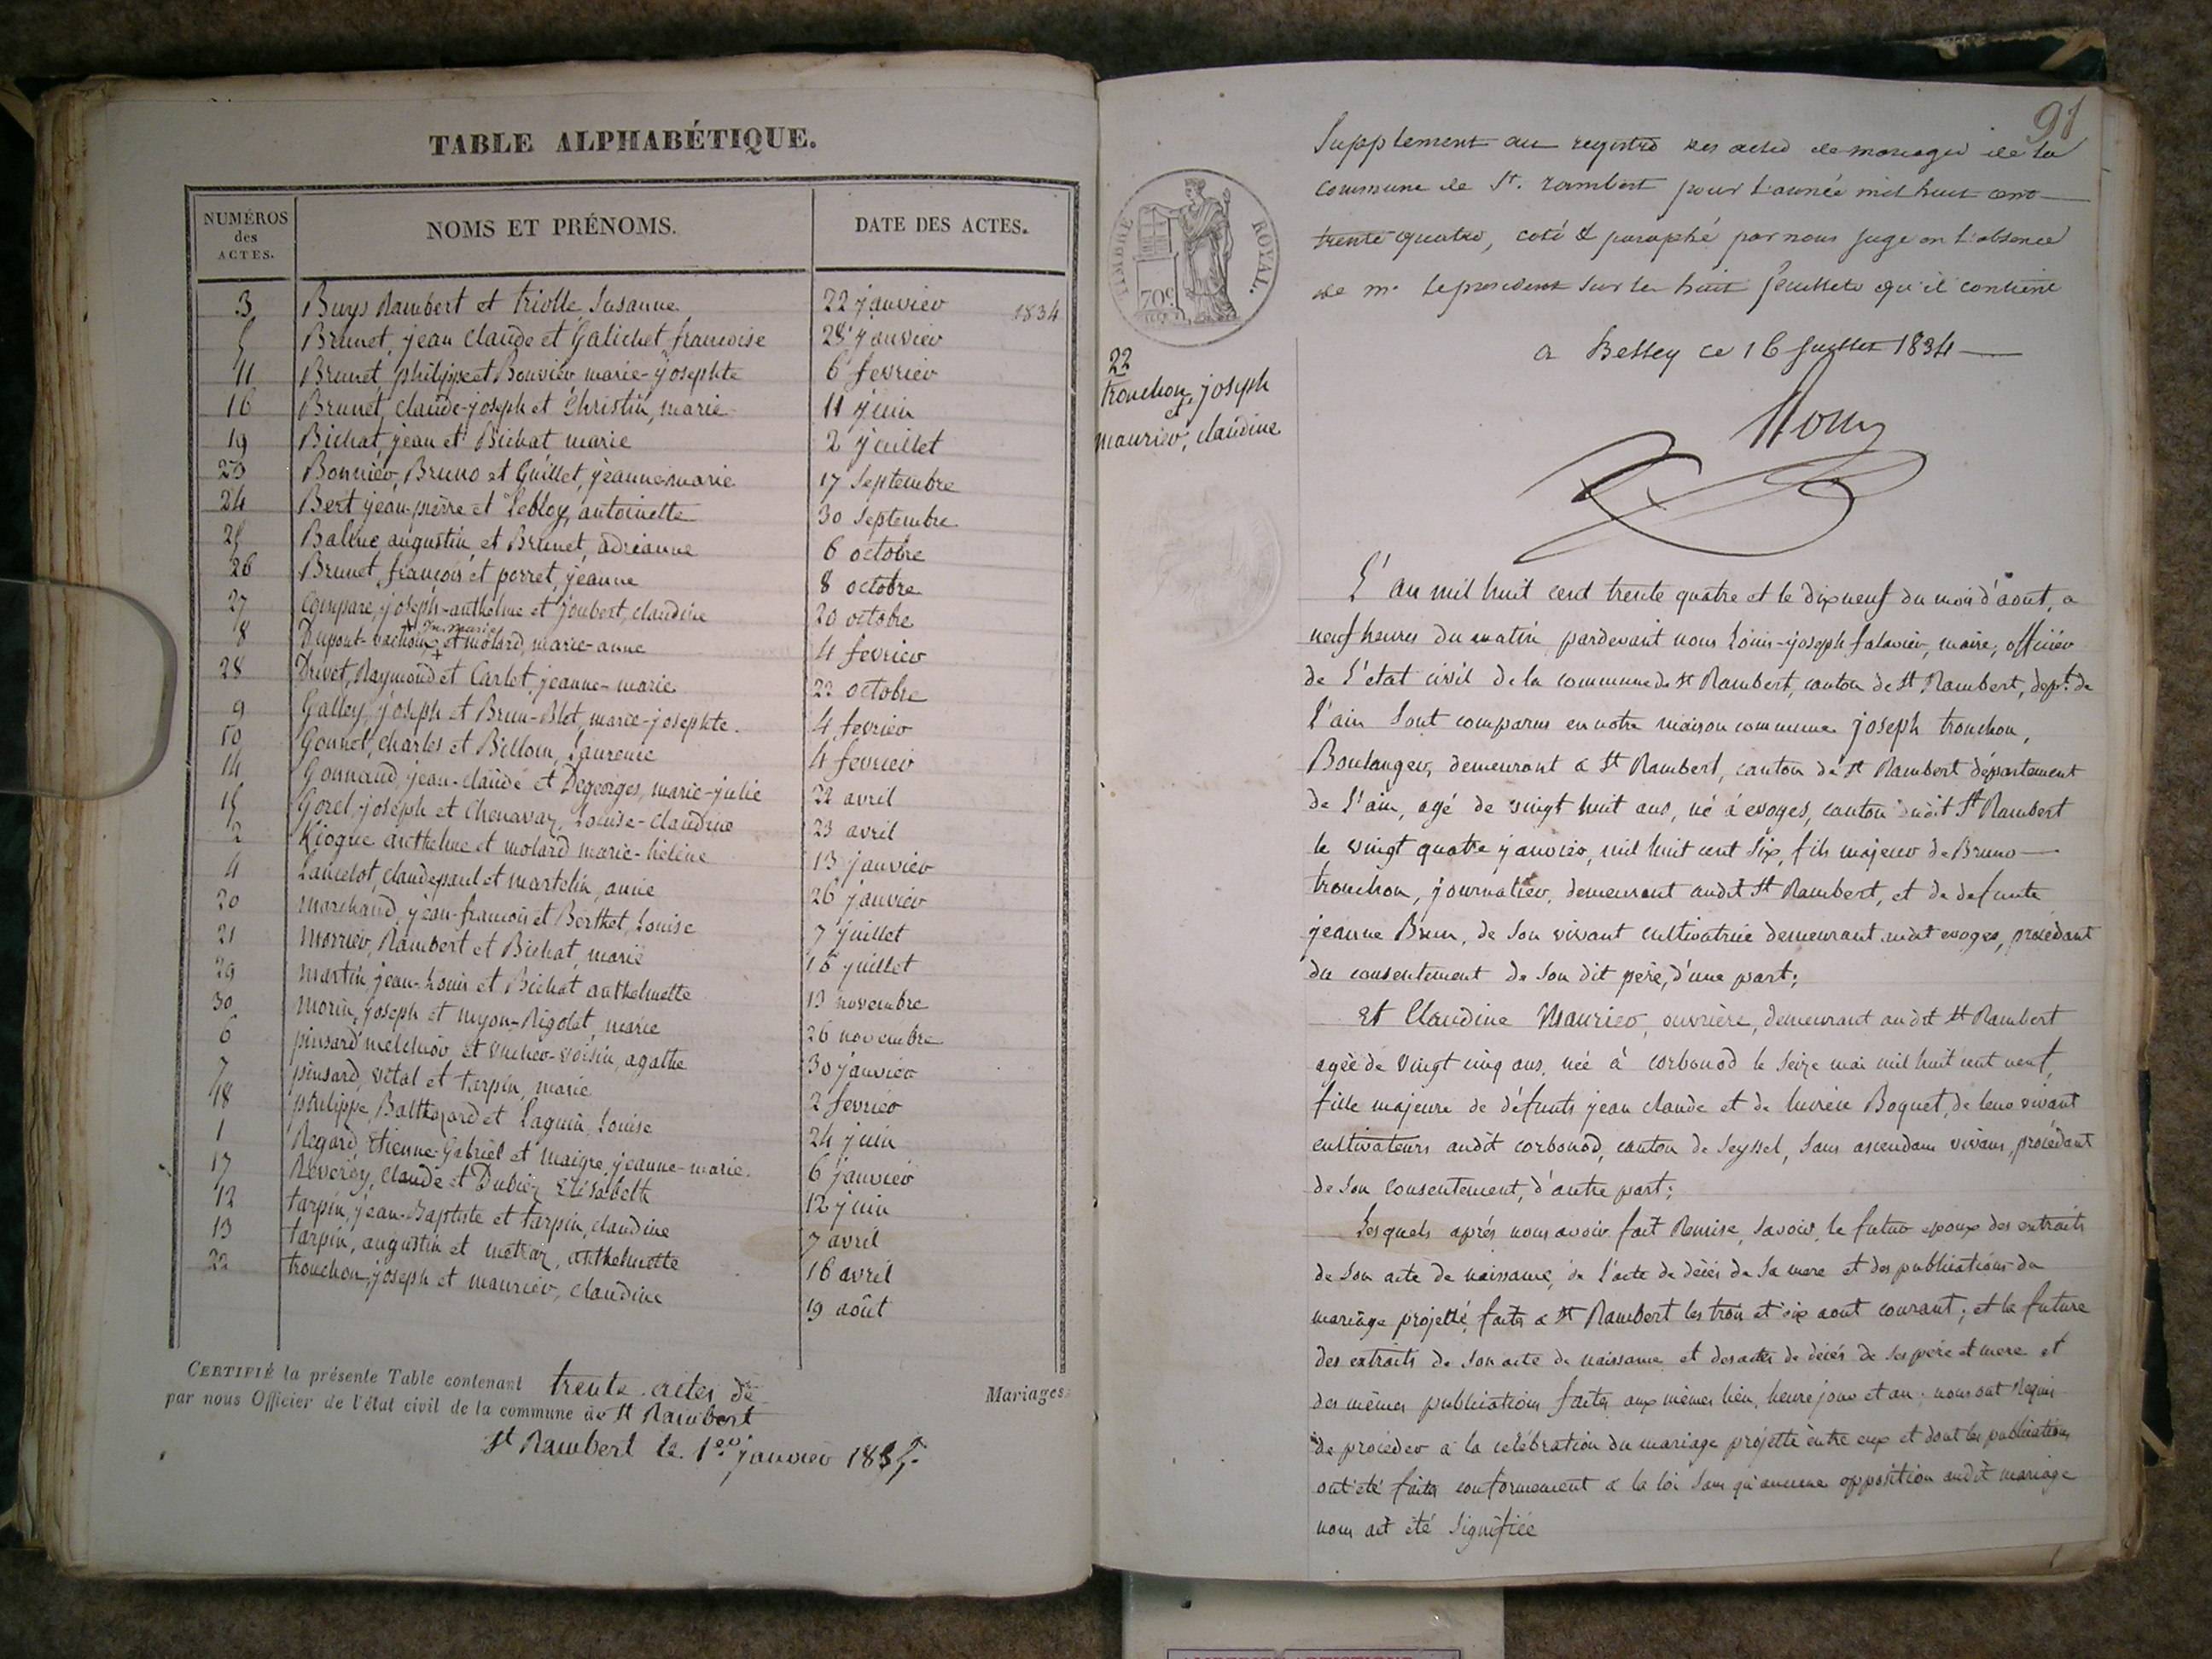 TABLE ALPHABÉTIQUE.
NUMÉROS des ACTES. NOMS ET PRÉNOMS. DATE DES ACTES.
3 Buys Rambert et triolle Susanne 22 janvier 1834
5 Brunet, jean claude et Galichet francoise 28 janvier
11 Brunet, philippe et Bouvier marie-josephte 6 fevrier
16 Brunet, claude-joseph et Christin, marie 11 juin
19 Bichat, jean et Bichat marie 2 juillet
23 Bonnier, Bruno et Guillet, jeanne-marie 17 Septembre
24 Bert jean-pierre et Lebloy, antoinette 30 Septembre
25 Balme, augustin et Brunet, adrianne 6 octobre
26 Brunet, françois et perret, jeanne 8 octobre
27 Compare, joseph-anthelme et joubert, claudine 20 octobre
8 Dupont- et molard, marie-anne 4 fevrier
28 Drivet, Raymond et Carlet, jeanne-marie 22 octobre
9 Galley, joseph et Brun-Blet, marie-josephte. 4 fevrier
10 Gonnet, charles et Billon, Laurence 4 fevrier
14 Gonnand, jean-claude et Degeorges, marie-julie 22 avril
15 Gorel, joseph et Chenavaz, Louise-claudine 23 avril
2 Kiogue anthelme et molard marie-hélène 13 janvier
4 Lancelot, claude paul et martelin, anne 26 janvier
20 marchand, jean-francois et Berthet, Louise 7 juillet
21 morrier, Rambert et Bichat, marie 15 juillet
29 martin jean-Louis et Bichat anthelmette 13 novembre
30 morin, joseph et myon-Rigolet, marie 26 novembre
6 pinsard melchior et vucher-voisin, agathe 30 janvier
7 pinsard, vital et tarpin, marie 2 fevrier
18 philippe, Balthazard et Laguin, Louise 24 juin
1 Regard, Etienne-Gabriel et maigre, jeanne-marie. 6 janvier
17 Reverdy, claude et Dubiez Elisabelth 12 juin
12 tarpin, jean-Baptiste et tarpin, claudine 7 avril
13 tarpin, augustin et mettraz, anthelmette 16 avril
22 trouchon, joseph et maurier, claudine 19 août
CERTIFIÉ la présente Table contenant trente actes de Mariages
par nous Officier de l'état civil de la commune de St Rambert
St Rambert le 1er janvier 1835.
91
Supplement au registre des actes de mariages de la
commune de St. rambert pour l'année mil huit cent
trente quatre, coté & paraphé par nous juge en l'absence
de mr le president sur les huit feuillets qu'il contient
a Belley ce 16 juillet 1834
TIMBRE ROYAL.
70c
22
trouchon, joseph
et
maurier, claudine
L'an mil huit cent trente quatre et le dix neuf du mois d'aout, a
neuf heures du matin pardevant nous Louis-joseph falavier, maire, officier
de l'etat civil de la commune de St Rambert, canton de St Rambert, dept. de
l'ain sont comparus en notre maison commune joseph trouchon,
Boulanger, demeurant a St Rambert, canton de St Rambert département
de l'ain, agé de vingt huit ans, né à evoges, canton dudit St Rambert
le vingt quatre janvier, mil huit cent six, fils majeur de Bruno
trouchon, journalier, demeurant audit St Rambert, et de defunte
jeanne Brun, de son vivant cultivatrice demeurant audit evoges, procédant
du consentement de son dit père, d'une part;
Et Claudine Maurier, ouvrière, demeurant audit St Rambert
agée de vingt cinq ans, née à corbonod le seize mai mil huit cent neuf,
fille majeure de défunts jean claude et de Boquet, de leur vivant
cultivateurs audit corbonod, canton de Seyssel, sans ascendans vivans, procédant
de son consentement, d'autre part;
Lesquels après nous avoir fait Remise, savoir, le futur epoux des extraits
de son acte de naissance, de l'acte de décès de sa mere et des publications du
mariage projetté, faites a St Rambert les trois et dix aout courant; et la future
des extraits de son acte de naissance et des actes de décès de ses père et mere et
des mêmes publications faites aux mêmes lieu, heure jour et an; nous ont Requis
de procéder a la celébration du mariage projetté entre eux et dont les publications
ont été faites conformement a la loi sans qu'aucune opposition audit mariage
nous ait été signifiée